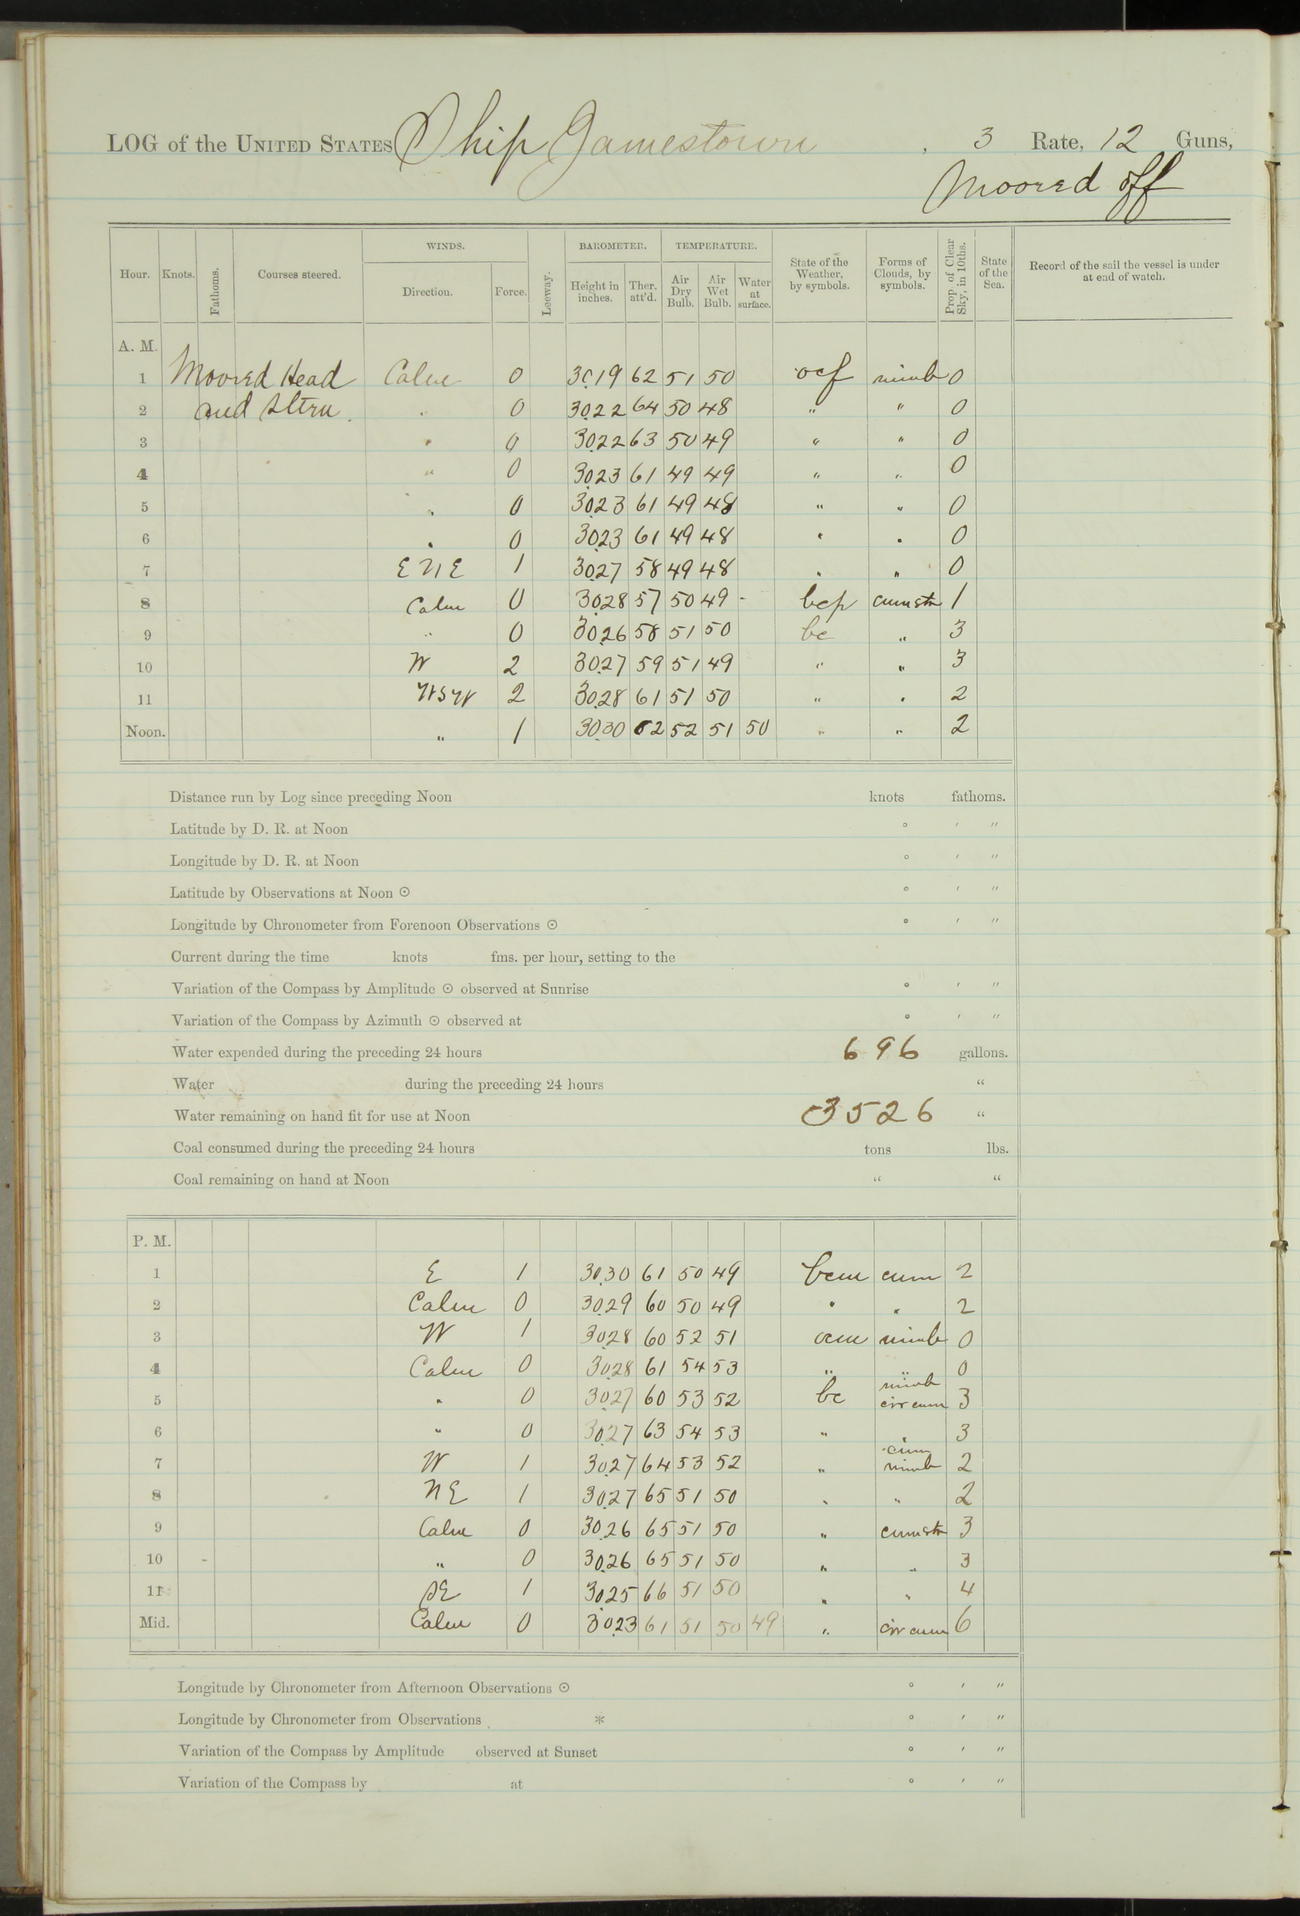 LOG of the UNITED STATES Ship Jamestown , 3 Rate, 12 Guns,
Moored off
Hour. Knots. Fathoms. Courses steered. WINDS. Direction. Force. Leeway. BAROMETER. Height in inches. Ther. att'd. TEMPERATURE. Air Dry Bulb. Air Wet Bulb. Water at surface. State of the Weather, by symbols. Forms of Clouds, by symbols. Prop. of Clear Sky, in 10ths. State of the Sea. Record of the sail the vessel is under at end of watch.
A. M.
1 Moored Head Calm 0 30.19 62 51 50 ocf nimb 0
2 and Stern. " 0 30.22 64 50 48 " " 0
3 " 0 30.22 63 50 49 " " 0
4 " 0 30.23 61 49 49 " " 0
5 " 0 30.23 61 49 48 " " 0
6 " 0 30.23 61 49 48 " " 0
7 ENE 1 30.27 58 49 48 " " 0
8 Calm 0 30.28 57 50 49 - bcp cumstr 1
9 " 0 30.26 58 51 50 bc " 3
10 W 2 30.27 59 51 49 " " 3
11 WSW 2 30.28 61 51 50 " " 2
Noon. " 1 30.30 62 52 51 50 " " 2
Distance run by Log since preceding Noon knots fathoms.
Latitude by D. R. at Noon ° ′ ″
Longitude by D. R. at Noon ° ′ ″
Latitude by Observations at Noon ☉ ° ′ ″
Longitude by Chronometer from Forenoon Observations ☉ ° ′ ″
Current during the time knots fms. per hour, setting to the
Variation of the Compass by Amplitude ☉ observed at Sunrise ° ′ ″
Variation of the Compass by Azimuth ☉ observed at ° ′ ″
Water expended during the preceding 24 hours 696 gallons.
Water during the preceding 24 hours "
Water remaining on hand fit for use at Noon 3526 "
Coal consumed during the preceding 24 hours tons lbs.
Coal remaining on hand at Noon " "
P. M.
1 E 1 30.30 61 50 49 bcm cum 2
2 Calm 0 30.29 60 50 49 " " 2
3 W 1 30.28 60 52 51 ocm nimb 0
4 Calm 0 30.28 61 54 53 " " 0
5 " 0 30.27 60 53 52 bc nimb cir cum 3
6 " 0 30.27 63 54 53 " " 3
7 W 1 30.27 64 53 52 " cum nimb 2
8 NE 1 30.27 65 51 50 " " 2
9 Calm 0 30.26 65 51 50 " cumstr 3
10 " 0 30.26 65 51 50 " " 3
11 SE 1 30.25 66 51 50 " " 4
Mid. Calm 0 30.23 61 51 50 49 " cir cum 6
Longitude by Chronometer from Afternoon Observations ☉ ° ′ ″
Longitude by Chronometer from Observations * ° ′ ″
Variation of the Compass by Amplitude observed at Sunset ° ′ ″
Variation of the Compass by at ° ′ ″